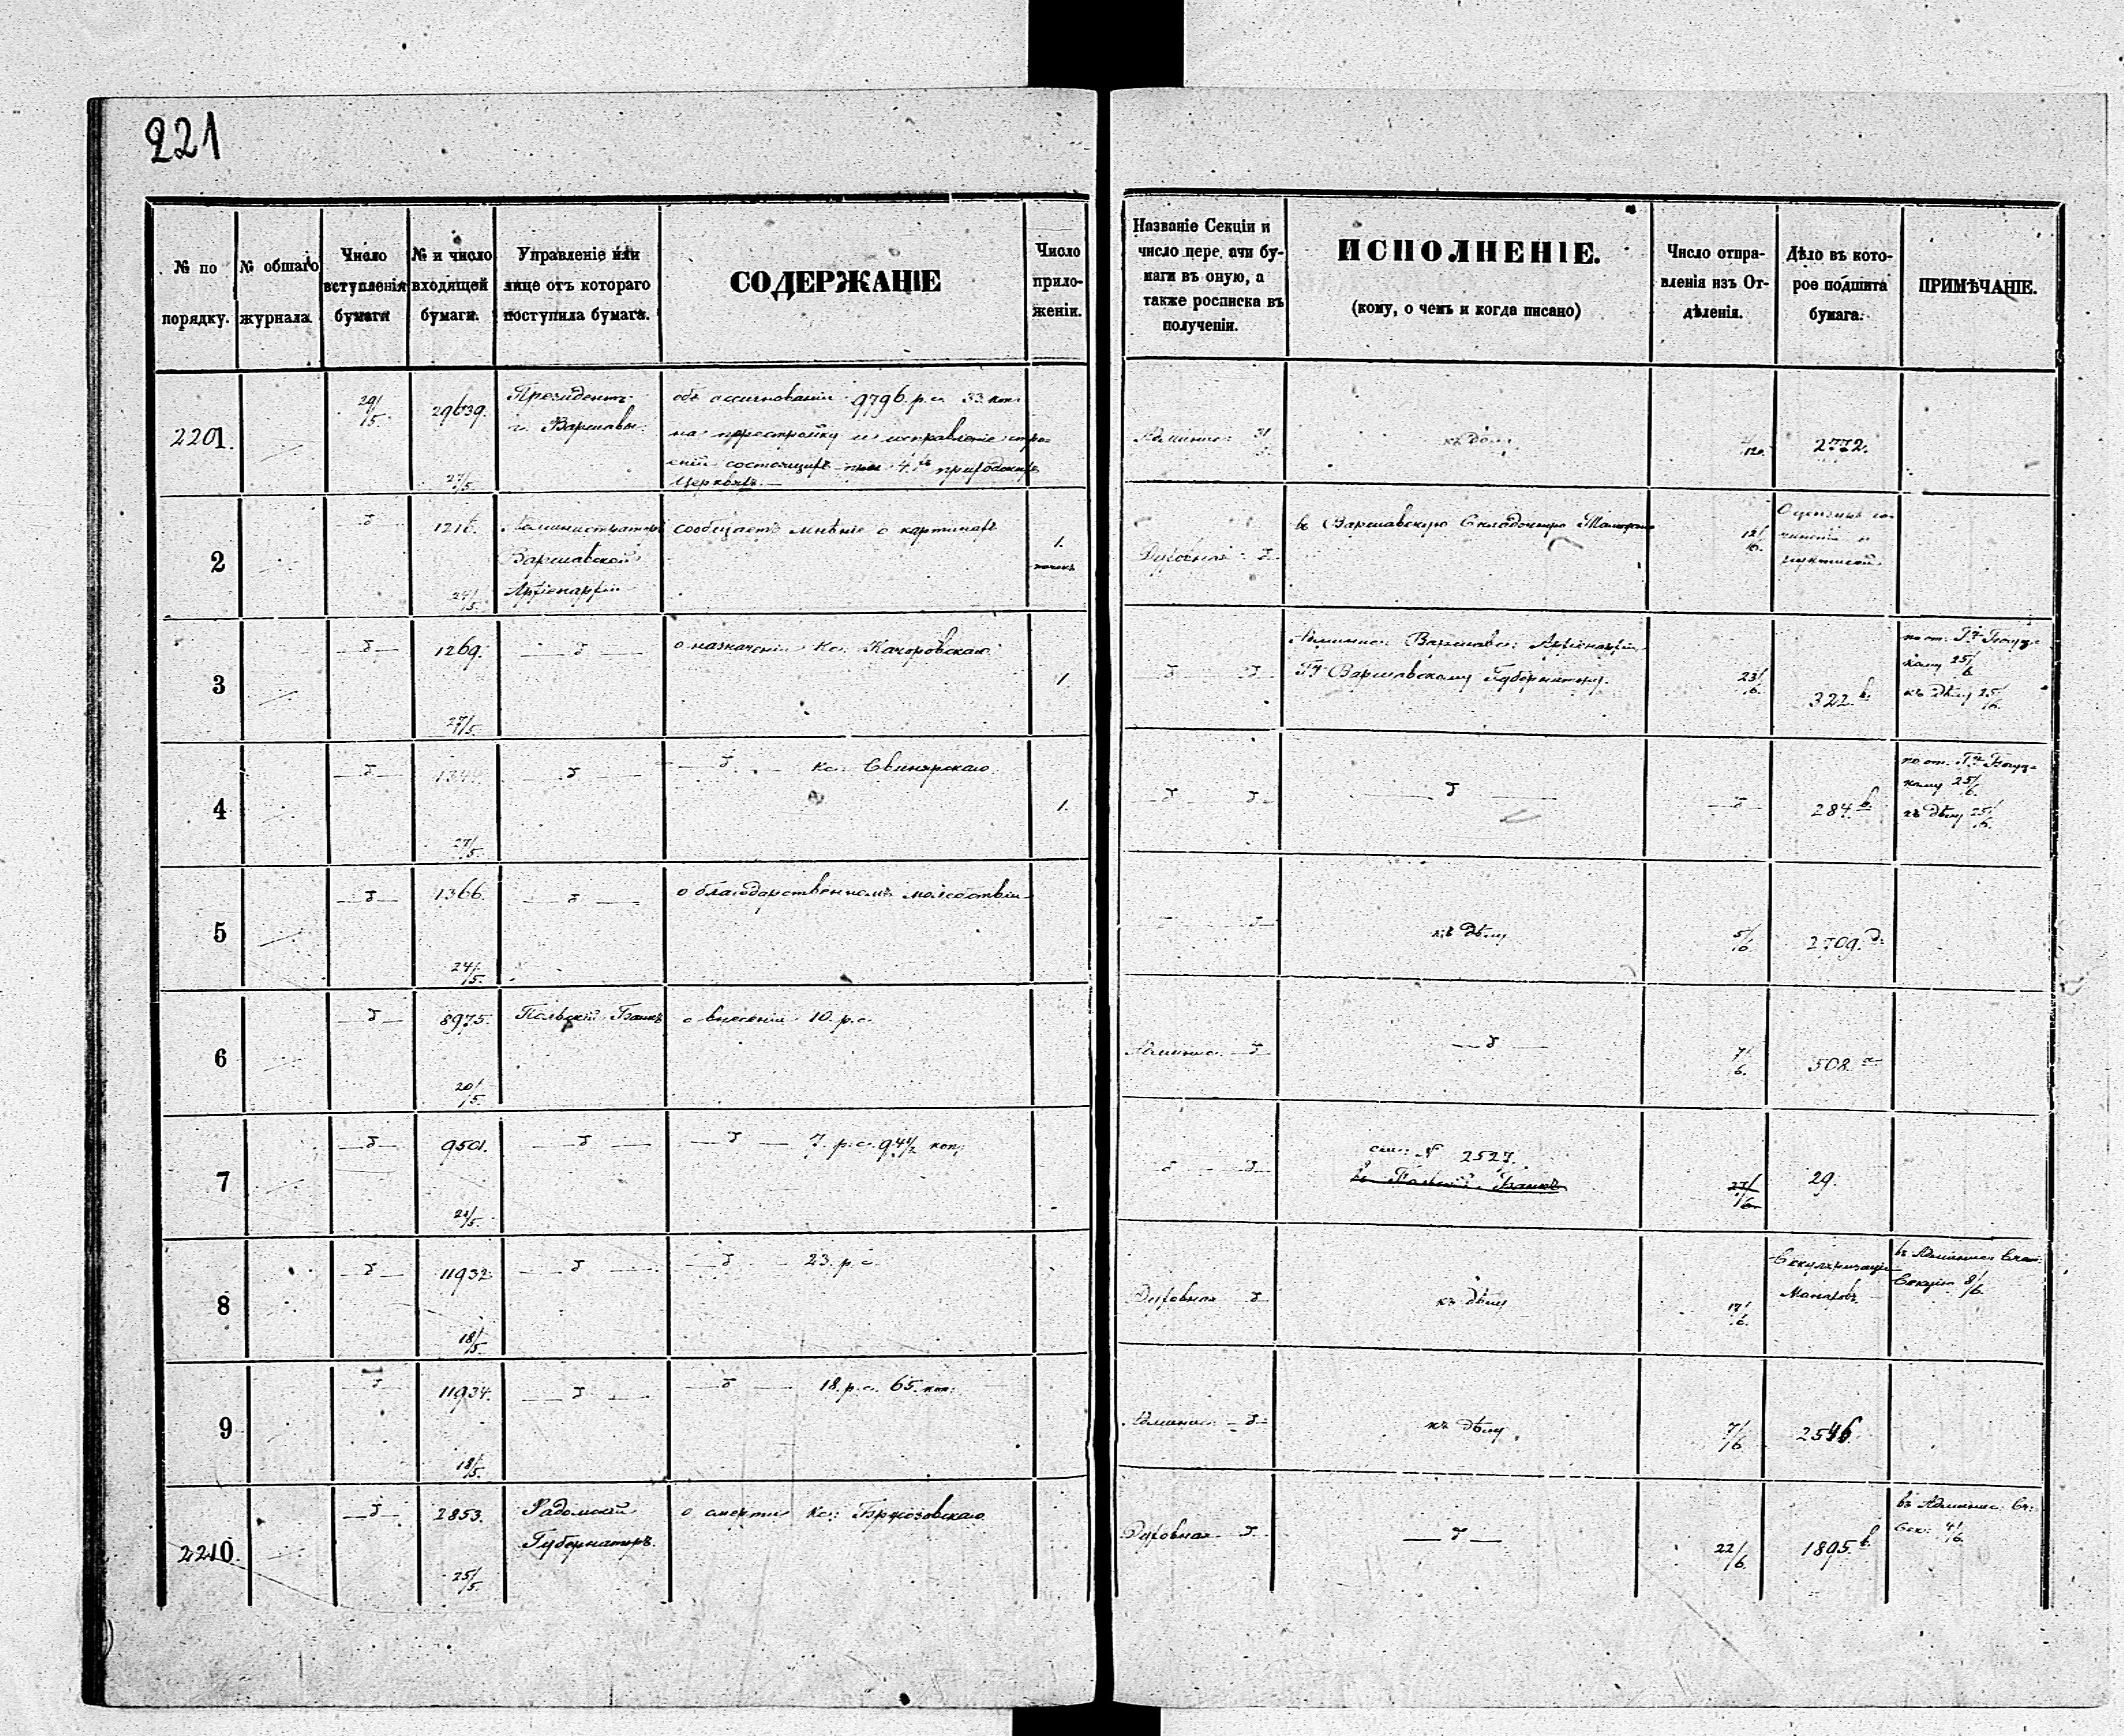 221
№ по порядку.
№ обшаго журнала.
Число вступленія бумаги
№ и число входящей бумаги.
Управленіе или лице отъ котораго поступила бумага.
СОДЕРЖАНІЕ
Число прило- женіи.
Названіе Секціи и число пере ачи бу- маги въ оную, а также росписка въ полученіи.
ИСПОЛНЕНІЕ.
(кому, о чемъ и когда писано)
Число отпра- вленія изъ От- дѣленія.
Дѣло въ кото- рое подшита бумага.
ПРИМѢЧАНІЕ.
2201.
29/5.
29639.
27/5.
Президентъ
г. Варшавы.
объ ассигнованіи 9796. р. с. 33. коп.
на перестройку и исправленіе стро-
еній состоящихъ при 4.хъ приходскихъ
Церквахъ.
Админис: 31/5.
къ дѣлу
2772.
2
24/5.
Администраторъ
Варшавской
Архіепархіи
сообщаетъ мнѣніе о картинахъ
1.
Духовная
въ Варшавскую Складочную Таможню
12/6.
3
1269.
27/5.
о назначеніи Кс. Качоровскаго
1
Админис: Варшавс: Архіепархіи
Гну Варшавскому Губернатору.
23/6.
322. b.
25/6
къ дѣлу 25/6.
4
27/5.
кс. Свинярскаго.
1.
284. b.
25/6.
къ дѣлу 25/6.
5
1366.
24/5.
о благодарственномъ молебствіи
къ дѣлу
5/6.
2709. d.
6
8975.
20/5.
Польскій Банкъ
о внесеніи 10. р. с.
Админис.
7/6.
508. a
7
9501.
21/5.
7. р. с. 94½ коп.
см: № 2527.
въ Польскій Банкъ
29.
8
11932
18/5.
23. р. с.
Духовная
къ дѣлу
17/6.
Секуляризація
Монаховъ
въ Админис.
Секцію 8/6.
9
11934.
18/5.
18. р. с. 65. коп.
Админис.
къ дѣлу
7/6
2546
2210.
2853.
25/5.
Радомскій
Губернаторъ.
о смерти Кс: Бржозовскаго
Духовная
22/6.
1895. b.
въ Админис. Сч:
Сек: 4/6.